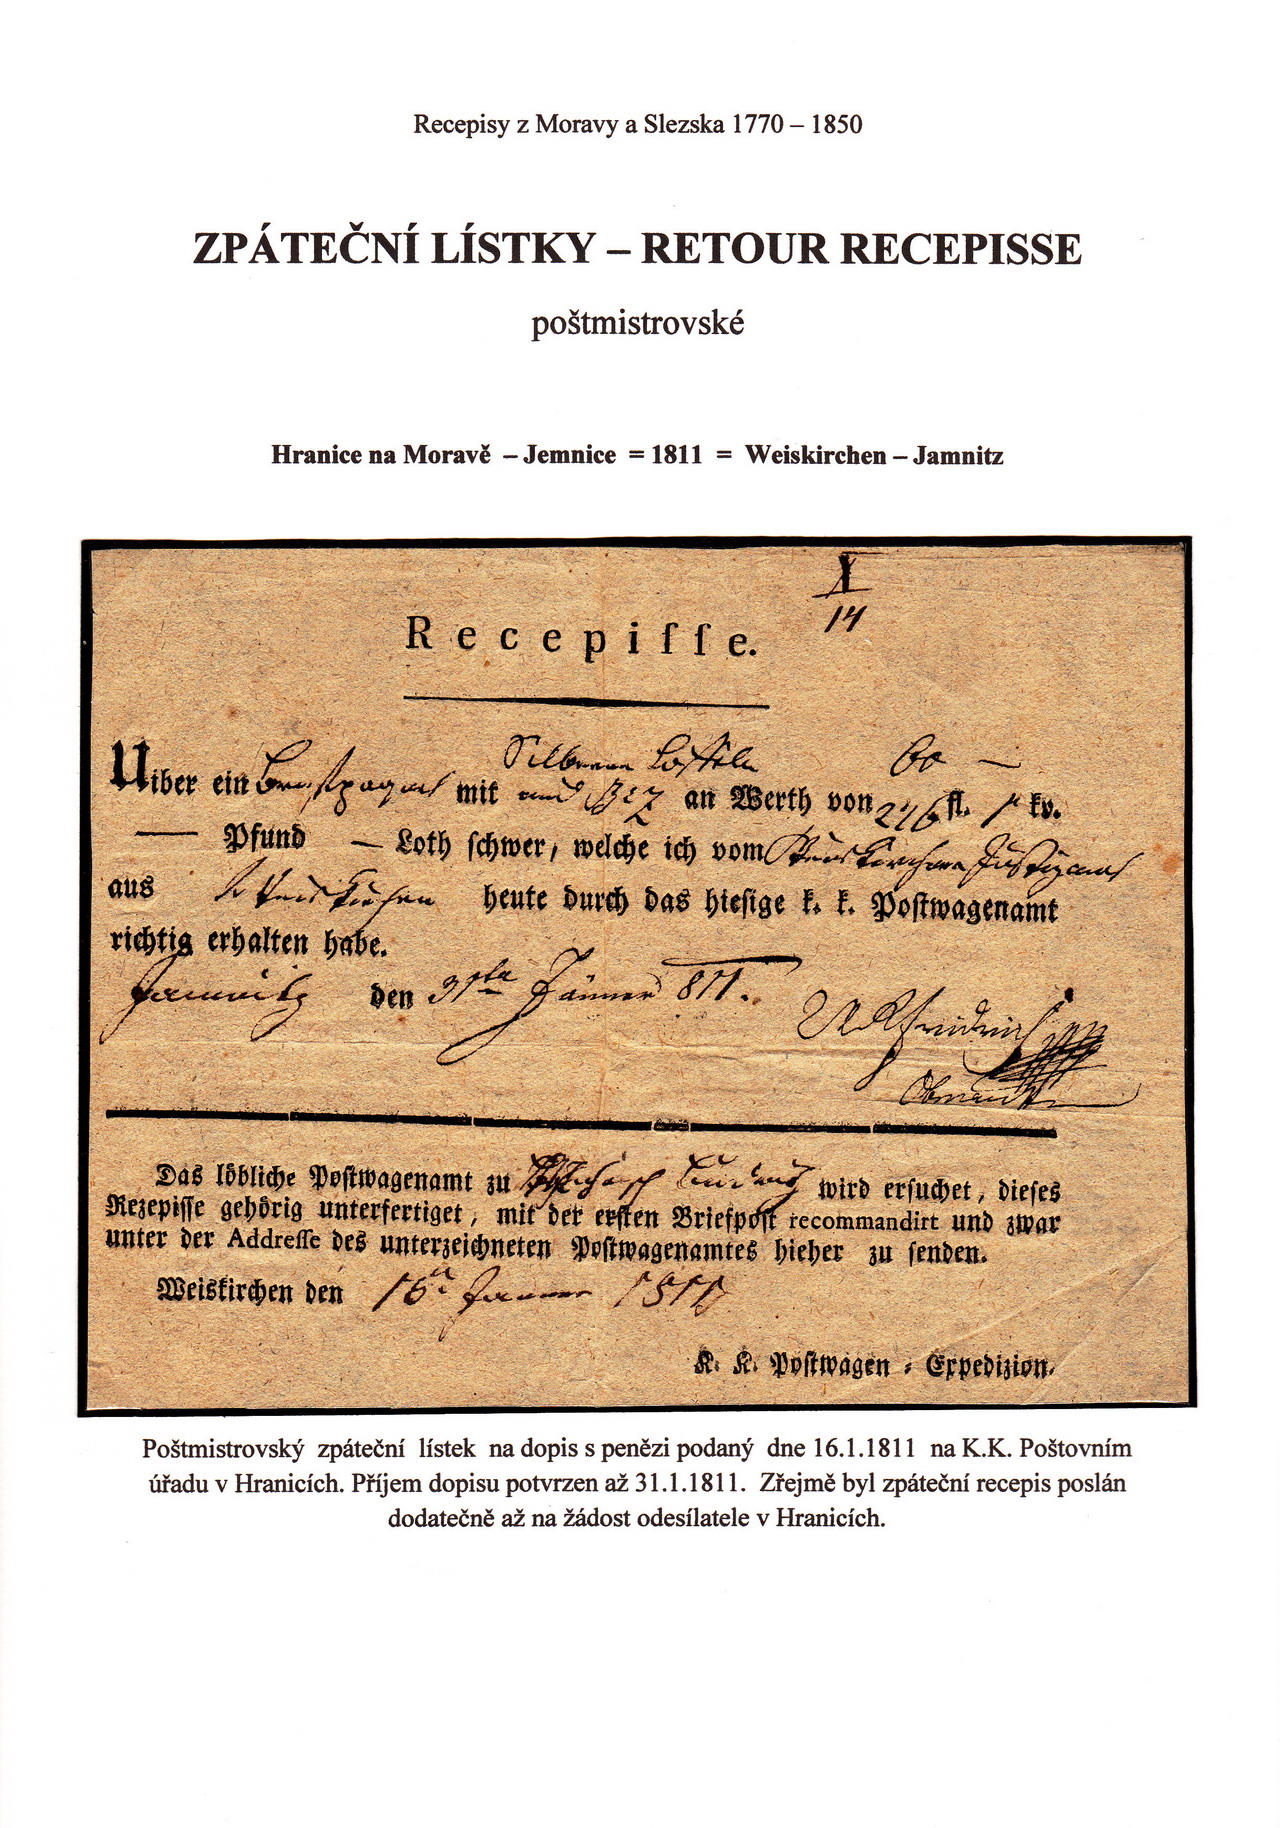 Recepisy z Moravy a Slezska 1770 – 1850
ZPÁTEČNÍ LÍSTKY – RETOUR RECEPISSE
poštmistrovské
Hranice na Moravě – Jemnice = 1811 = Weiskirchen – Jamnitz
X
14
Recepiſſe.
Silberne Löffeln 60 —
Uiber ein mit und an Werth von 246 fl. kr.
— Pfund — Loth ſchwer, welche ich vom Weiskirchner Justizamt
aus Weiskirchen heute durch das hieſige k. k. Poſtwagenamt
richtig erhalten habe.
Jamnitz den 31ten Jänner 811.
Das löbliche Poſtwagenamt zu wird erſuchet, dieſes
Rezepiſſe gehörig unterfertiget, mit der erſten Briefpoſt recommandirt und zwar
unter der Addreſſe des unterzeichneten Poſtwagenamtes hieher zu ſenden.
Weiskirchen den 16n Janner 1811
K. K. Poſtwagen = Expedizion.
Poštmistrovský zpáteční lístek na dopis s penězi podaný dne 16.1.1811 na K.K. Poštovním
úřadu v Hranicích. Příjem dopisu potvrzen až 31.1.1811. Zřejmě byl zpáteční recepis poslán
dodatečně až na žádost odesílatele v Hranicích.